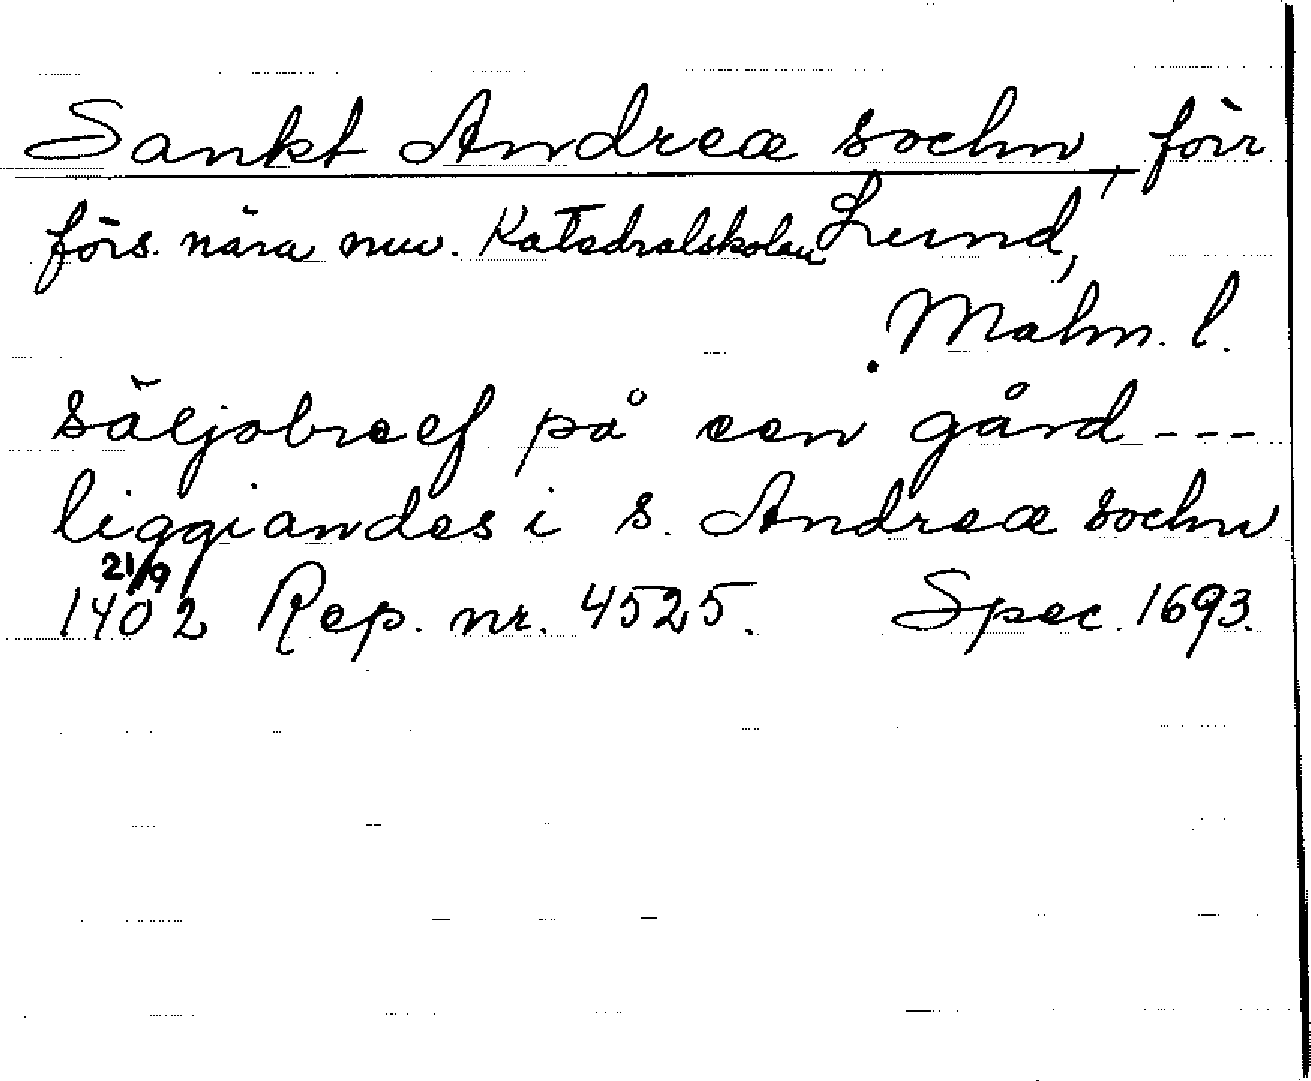 Sankt Andreæ sochn, förr
förs. nära nuv. Katedralskolan Lund,
Malm. l.
säljobreef på een gård ---
liggiandes i s. Andreæ sochn
21/9 1402 Rep. nr. 4525. Spec. 1693.